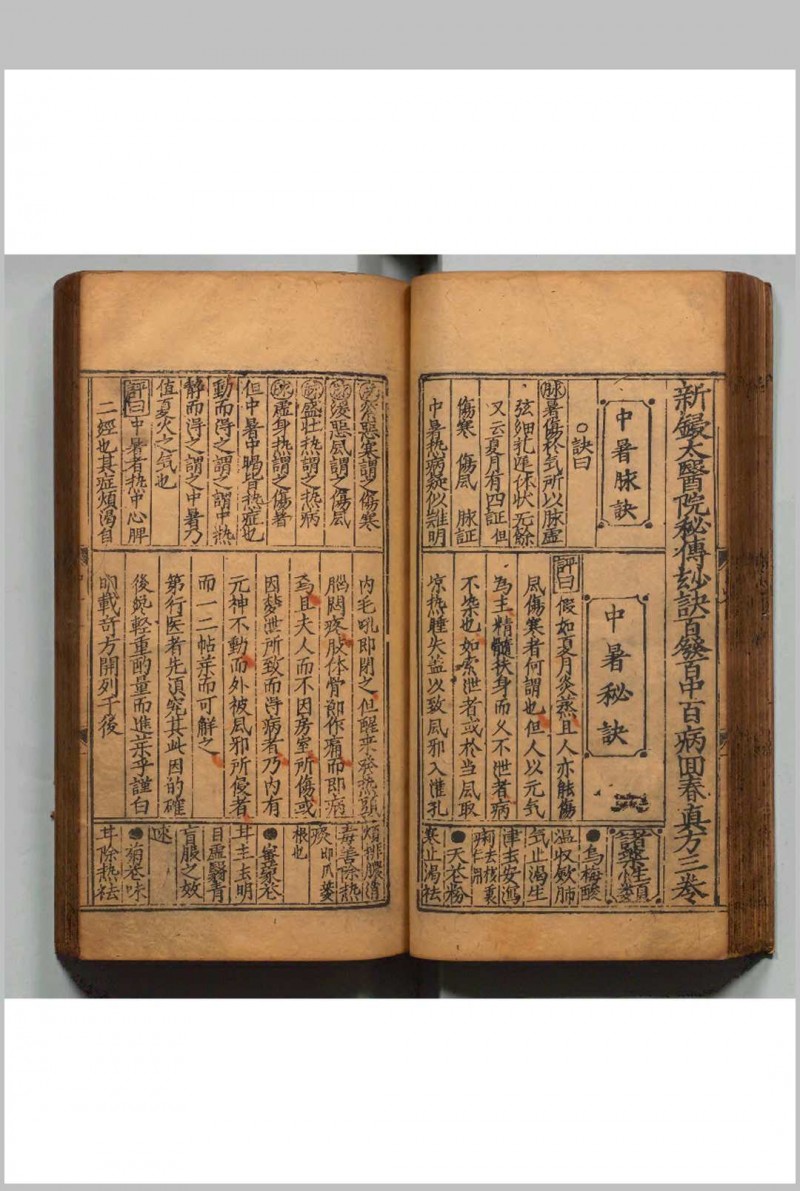 新鋟太醫院秘傳玅訣百發百中百病回春真方三卷
中暑脉訣
○訣曰
脉暑傷於気所以脉虚
弦細芤遲体状无餘
又云夏月有四証但
傷寒 傷風 脉証
中暑热病疑似难明
中暑秘訣
評曰假如夏月炎蒸且人亦能傷
風傷寒者何謂也但人以元気
為主精髓扶身而乂不泄者病
不染也如索泄者或於当風取
凉热睡失盖以致風邪入淮孔
諸藥性類
●烏梅酸
温収歛肺
気止渴生
津去安瀉
痢去核裏
肉仁用
●天花粉
寒止渴祛
脉緊惡寒謂之傷寒
脉浚惡風謂之傷風
脉盛壮热謂之热病
脉虚身热謂之傷暑
但中暑中暍皆热症也
動而得之謂之中热
静而得之謂之中暑乃
值夏火之気也
評曰中暑者热中心脾
二經也其症煩渴自
内毛吼即閉之但醒来発热頭
腦悶疼肢体骨節作痛而即病
焉且夫人而不因房室所傷或
因夢泄所致而得病者乃内有
元神不動而外被風邪所侵者
而一二帖茶而可解之
第行医者先湏究其此因的確
後䏈輕重酌量而進茶乎謹白
明載竒方開列于後
煩排膿消
毒善除热
痰即爪蔞
根也
●蜜蒙花
甘主去明
目虚翳青
盲服之效
速
●菊花味
甘除热祛